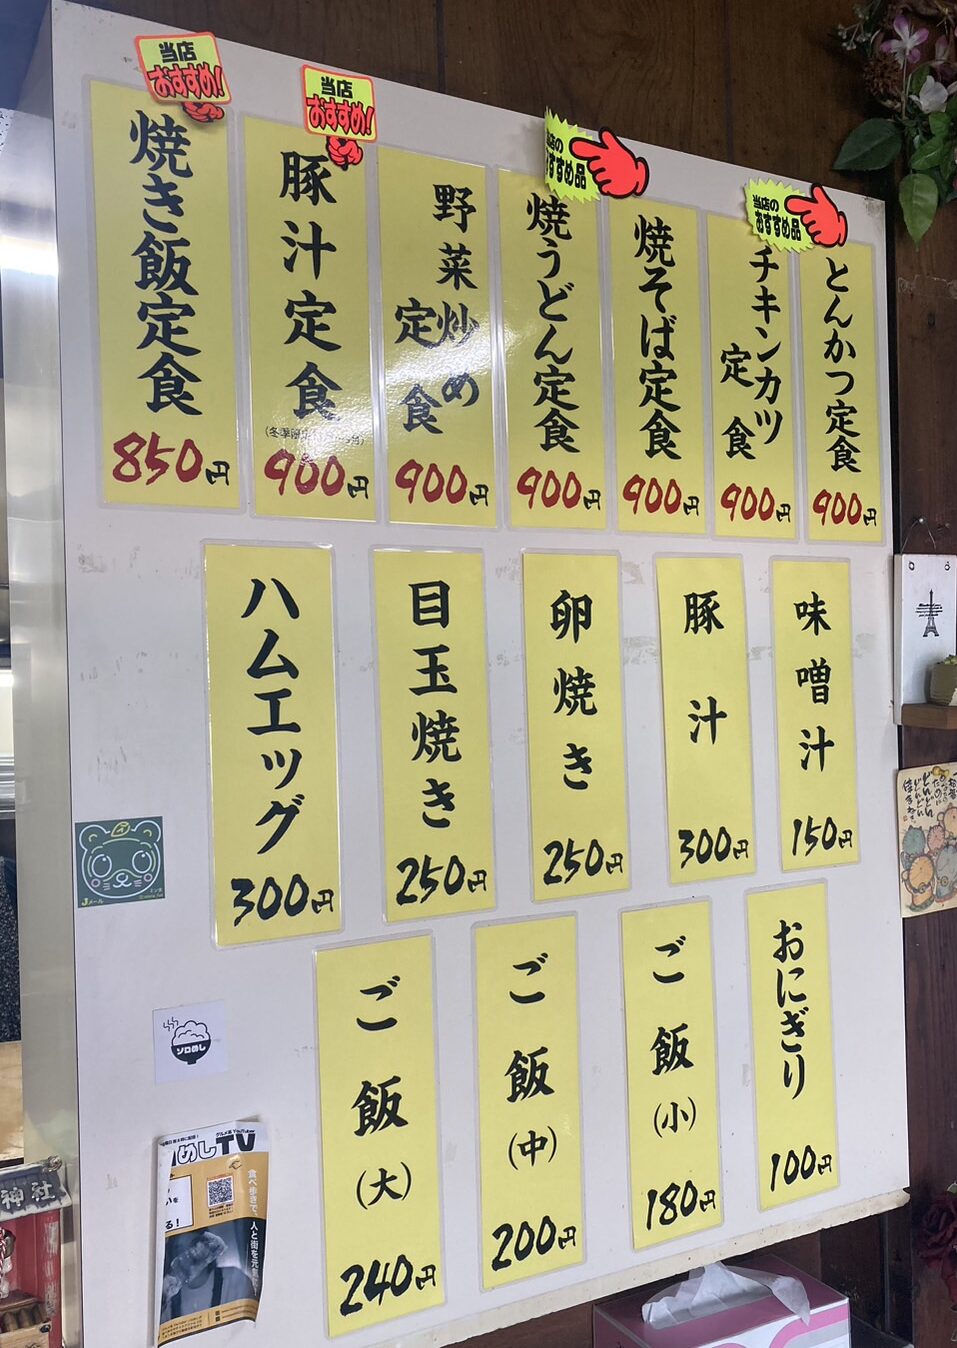 当店
おすすめ!
当店
おすすめ!
すすめ品
当店の
おすすめ品
とんかつ定食
900円
チキンカツ
定食
900円
焼そば定食
900円
焼うどん定食
900円
野菜炒め
定食
900円
豚汁定食
900円
焼き飯定食
850円
味噌汁
150円
豚汁
300円
卵焼き
250円
目玉焼き
250円
ハムエッグ
300円
おにぎり
100円
ご飯
(小)
180円
ご飯
(中)
200円
ご飯
(大)
240円
Jメール
ソロめし
めしTV
食べ歩きで、人と街を元気に
る!
神社